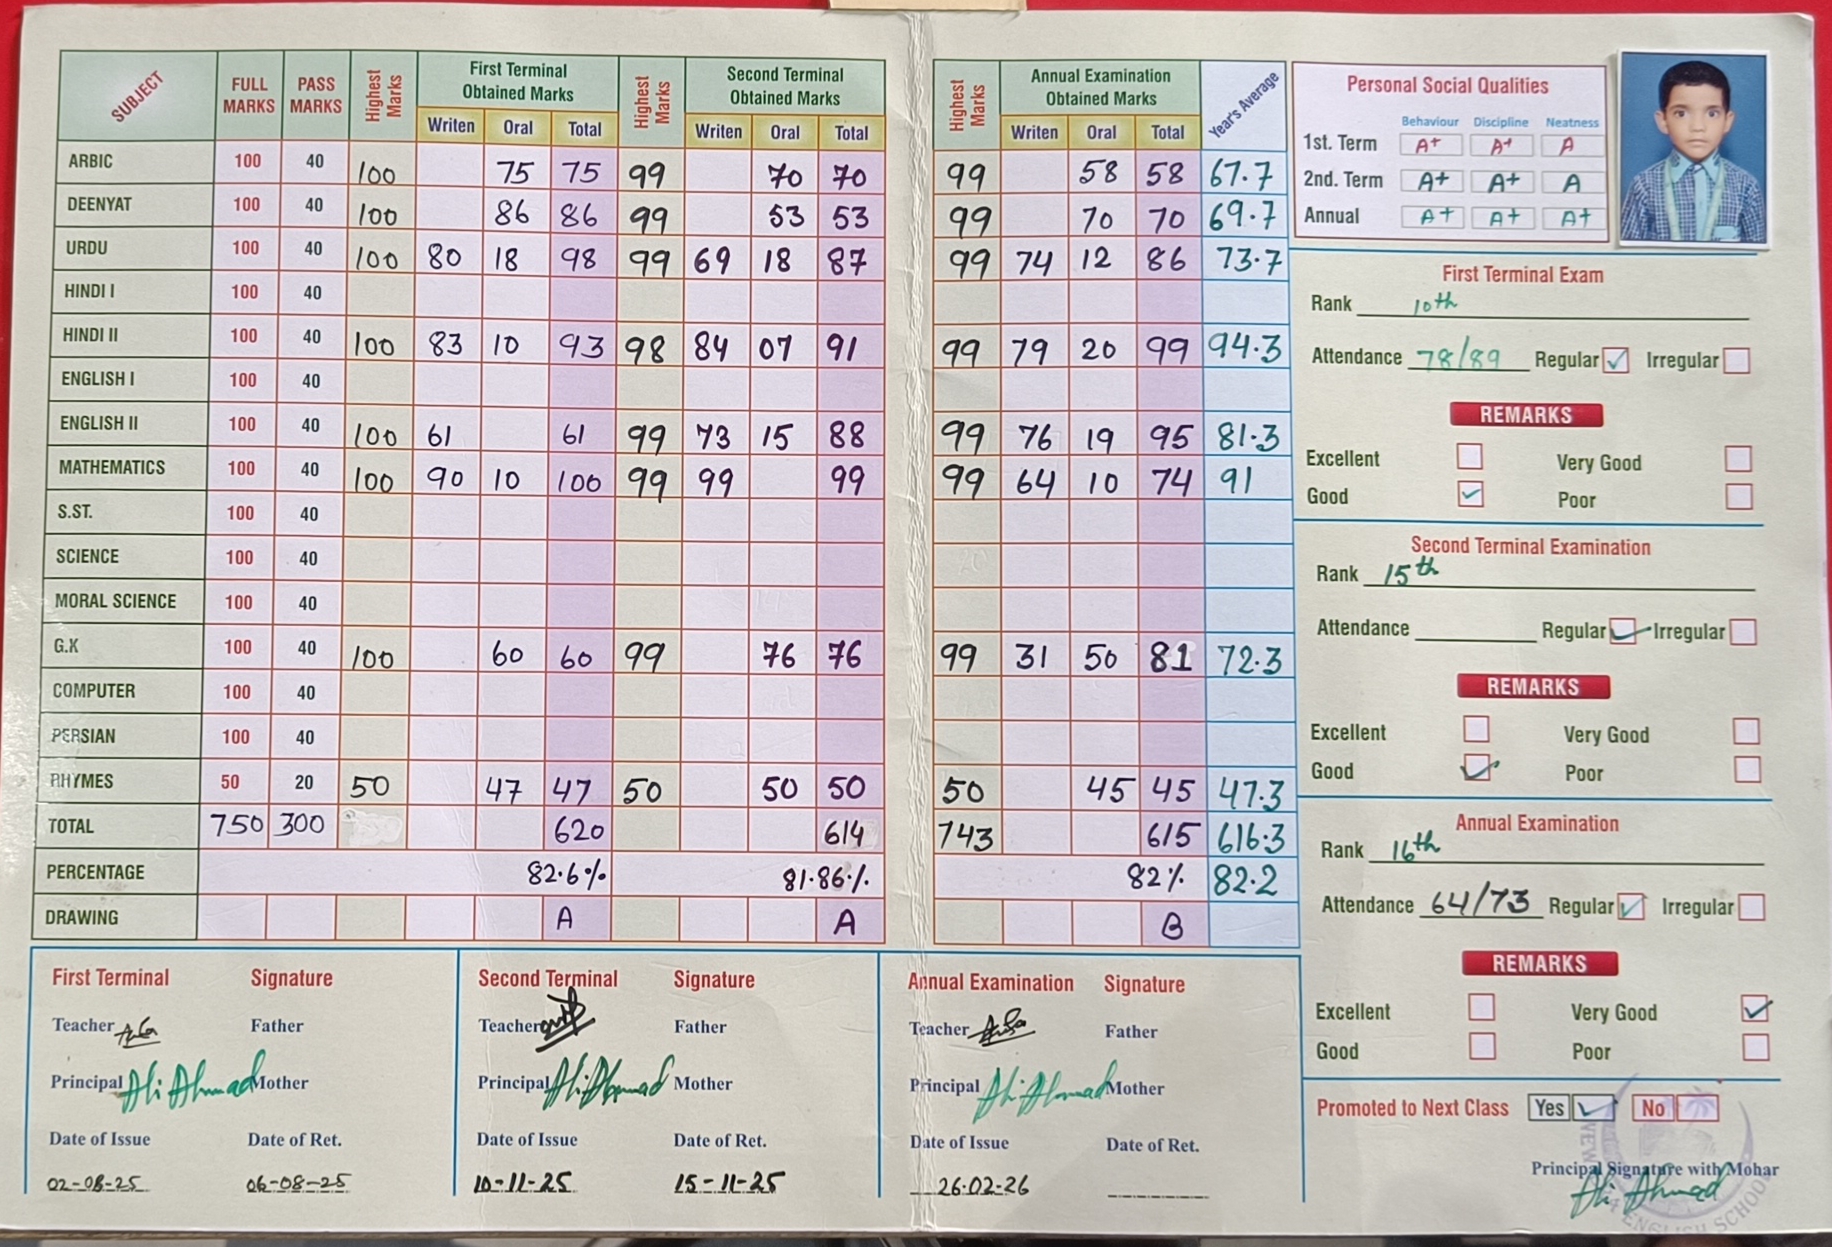 SUBJECT FULL MARKS PASS MARKS Highest Marks First Terminal Obtained Marks Highest Marks Second Terminal Obtained Marks Highest Marks Annual Examination Obtained Marks Year's Average
Writen Oral Total Writen Oral Total Writen Oral Total
ARBIC 100 40 100 75 75 99 70 70 99 58 58 67.7
DEENYAT 100 40 100 86 86 99 53 53 99 70 70 69.7
URDU 100 40 100 80 18 98 99 69 18 87 99 74 12 86 73.7
HINDI I 100 40
HINDI II 100 40 100 83 10 93 98 84 07 91 99 79 20 99 94.3
ENGLISH I 100 40
ENGLISH II 100 40 100 61 61 99 73 15 88 99 76 19 95 81.3
MATHEMATICS 100 40 100 90 10 100 99 99 99 99 64 10 74 91
S.ST. 100 40
SCIENCE 100 40
MORAL SCIENCE 100 40
G.K 100 40 100 60 60 99 76 76 99 31 50 81 72.3
COMPUTER 100 40
PERSIAN 100 40
RHYMES 50 20 50 47 47 50 50 50 50 45 45 47.3
TOTAL 750 300 620 614 743 615 616.3
PERCENTAGE 82.6% 81.86% 82% 82.2
DRAWING A A B
First Terminal Signature
Teacher Father
Principal Ali Ahmad Mother
Date of Issue Date of Ret.
02-08-25 06-08-25
Second Terminal Signature
Teacher Father
Principal Ali Ahmad Mother
Date of Issue Date of Ret.
10-11-25 15-11-25
Annual Examination Signature
Teacher Father
Principal Ali Ahmad Mother
Date of Issue Date of Ret.
26.02-26
Personal Social Qualities
Behaviour Discipline Neatness
1st. Term A+ A+ A
2nd. Term A+ A+ A
Annual A+ A+ A+
First Terminal Exam
Rank 10th
Attendance 78/89 Regular Irregular
REMARKS
Excellent Very Good
Good Poor
Second Terminal Examination
Rank 15th
Attendance Regular Irregular
REMARKS
Excellent Very Good
Good Poor
Annual Examination
Rank 16th
Attendance 64/73 Regular Irregular
REMARKS
Excellent Very Good
Good Poor
Promoted to Next Class Yes No
Principal Signature with Mohar
Ali Ahmad
ENGLISH SCHOOL